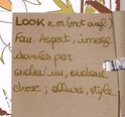 LOOK n.m. (mot angl)
Fam. Aspect, image
donnés par
quelqu'un, quelque
chose ; allure, style.